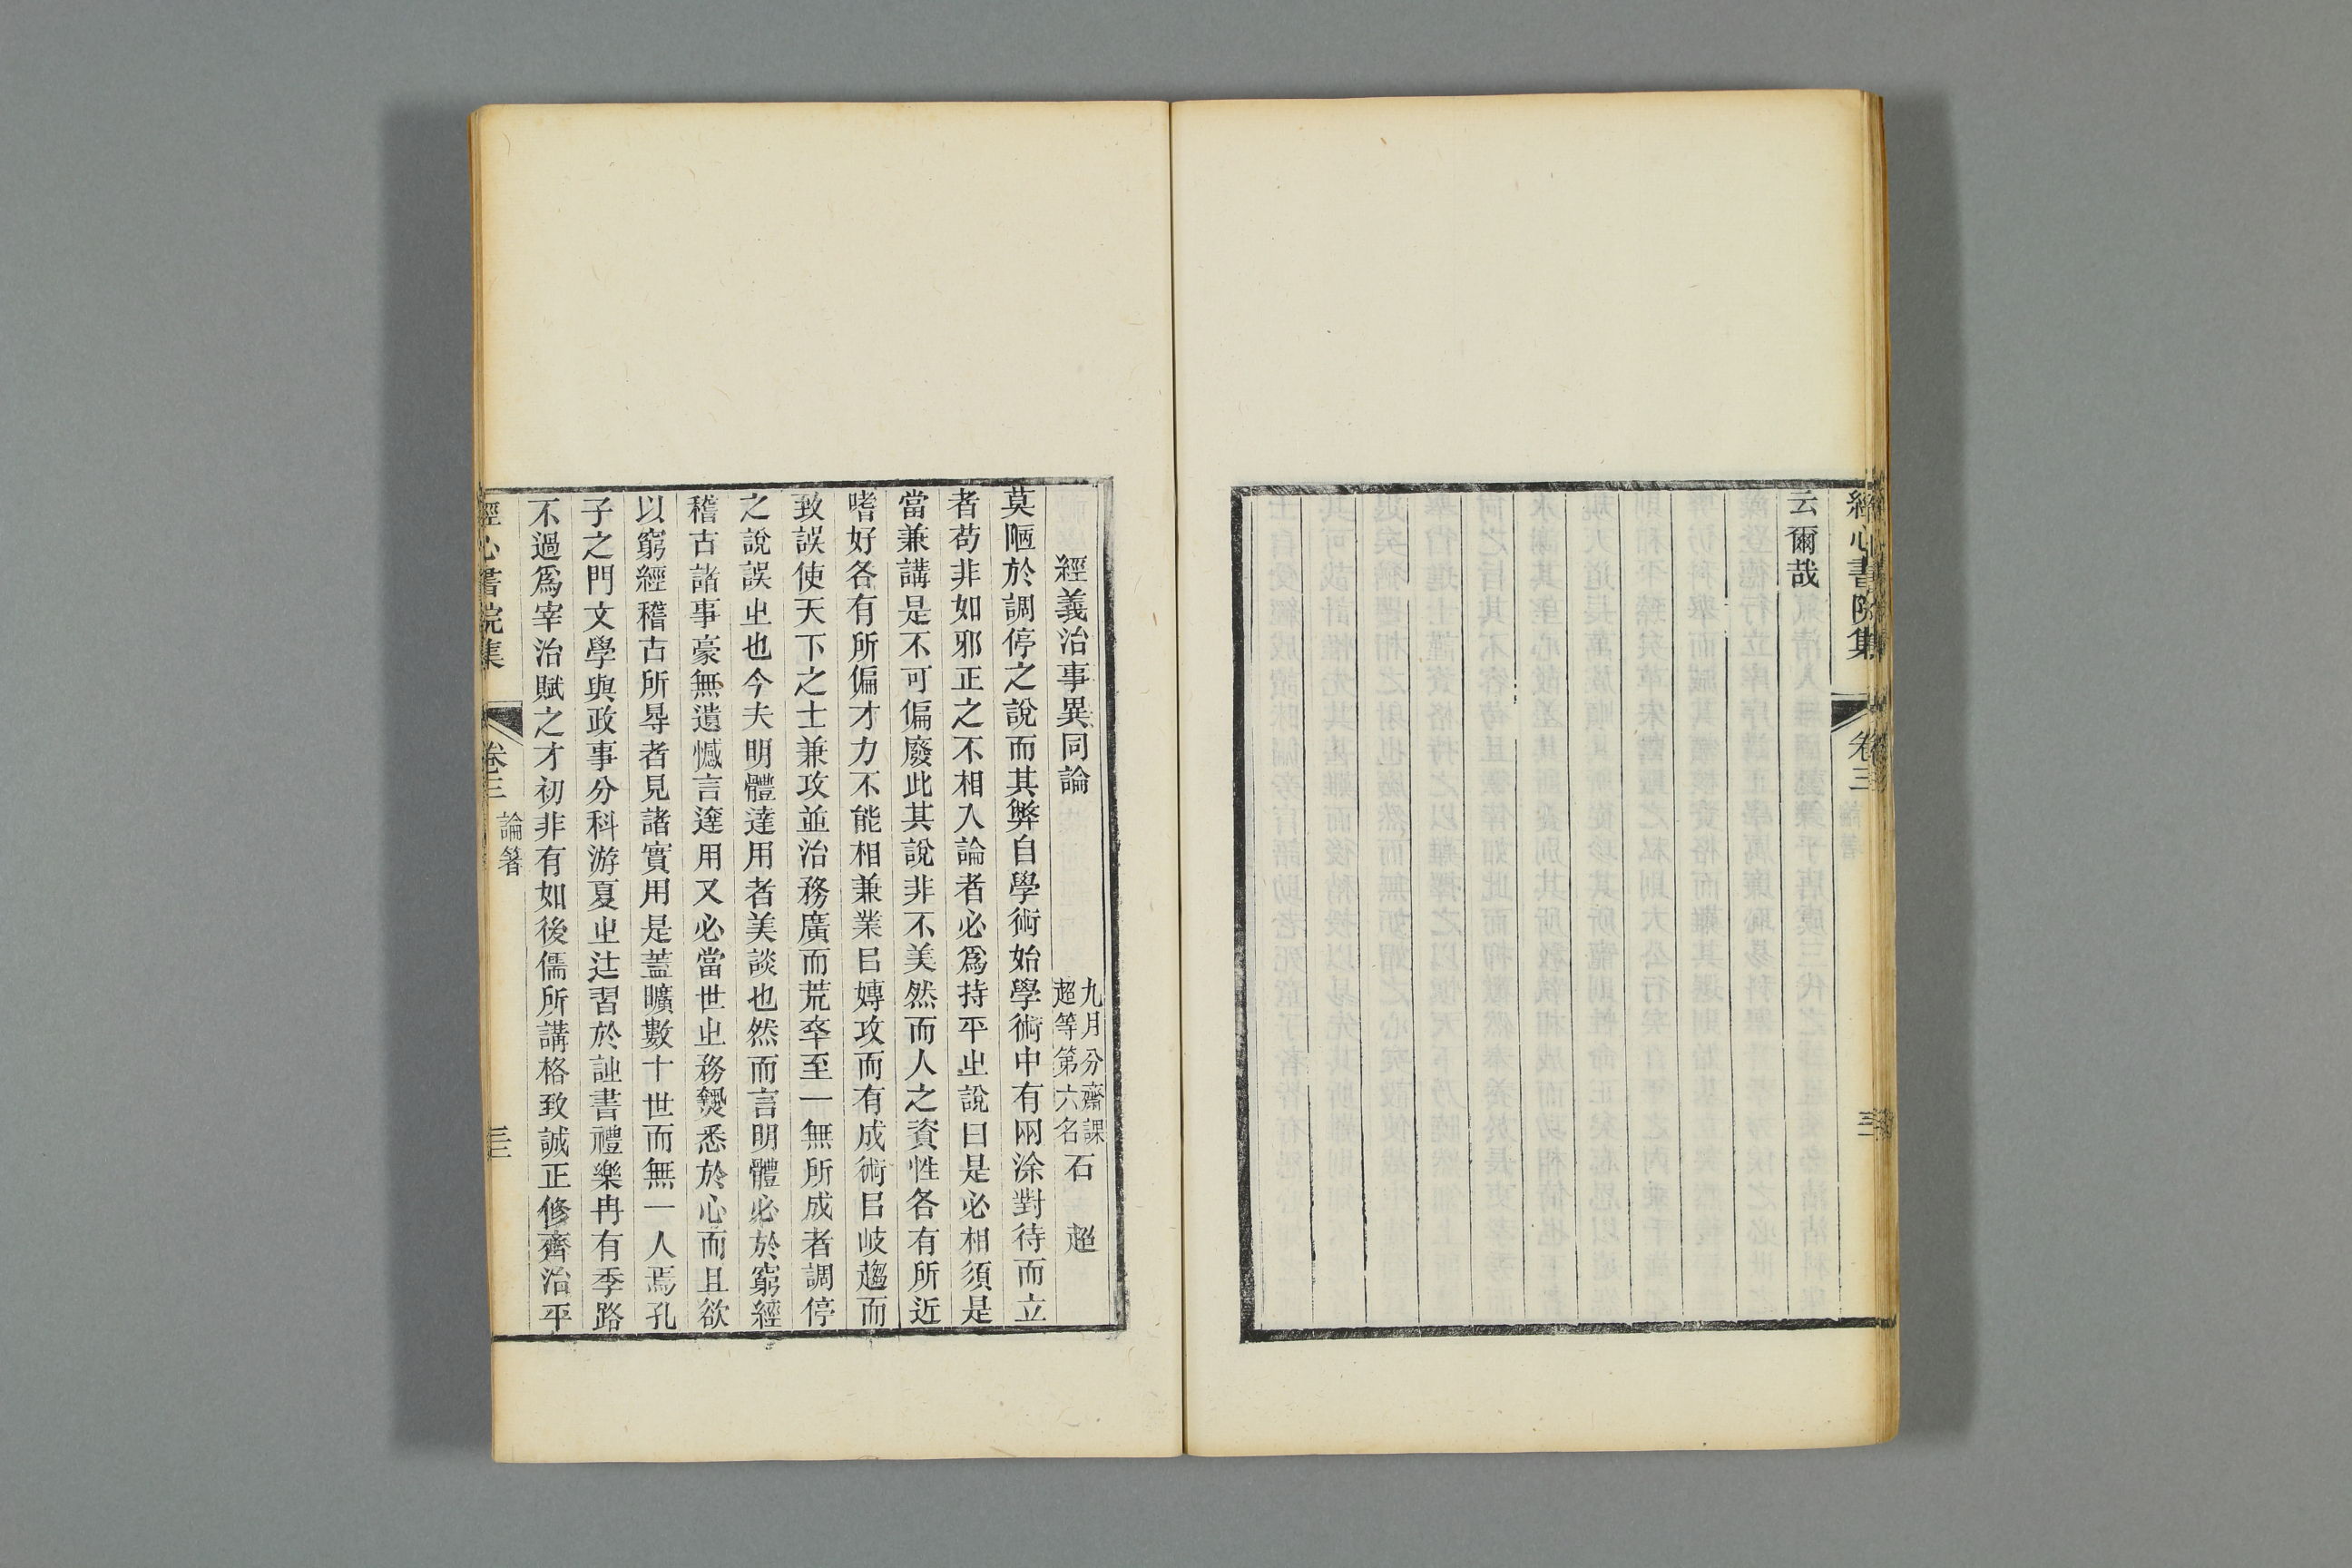 經心書院集
卷三
三
云爾哉
經義治事異同論
九月分齋課
超等第六名
石 超
莫陋於調停之說而其弊自學術始學術中有兩涂對待而立
者苟非如邪正之不相入論者必爲持平㞢說曰是必相須是
當兼講是不可偏廢此其說非不美然而人之資性各有所近
嗜好各有所偏才力不能相兼業㠯嫥攻而有成術㠯岐趨而
致誤使天下之士兼攻並治務廣而荒卒至一無所成者調停
之說誤㞢也今夫明體達用者美談也然而言明體必於窮經
稽古諸事豪無遺憾言達用又必當世㞢務爕悉於心而且欲
以窮經稽古所㝵者見諸實用是蓋曠數十世而無一人焉孔
子之門文學與政事分科游夏㞢迬習於詍書禮樂冉有季路
不過爲宰治賦之才初非有如後儒所講格致誠正修齊治平
經心書院集
卷三
論箸
三二